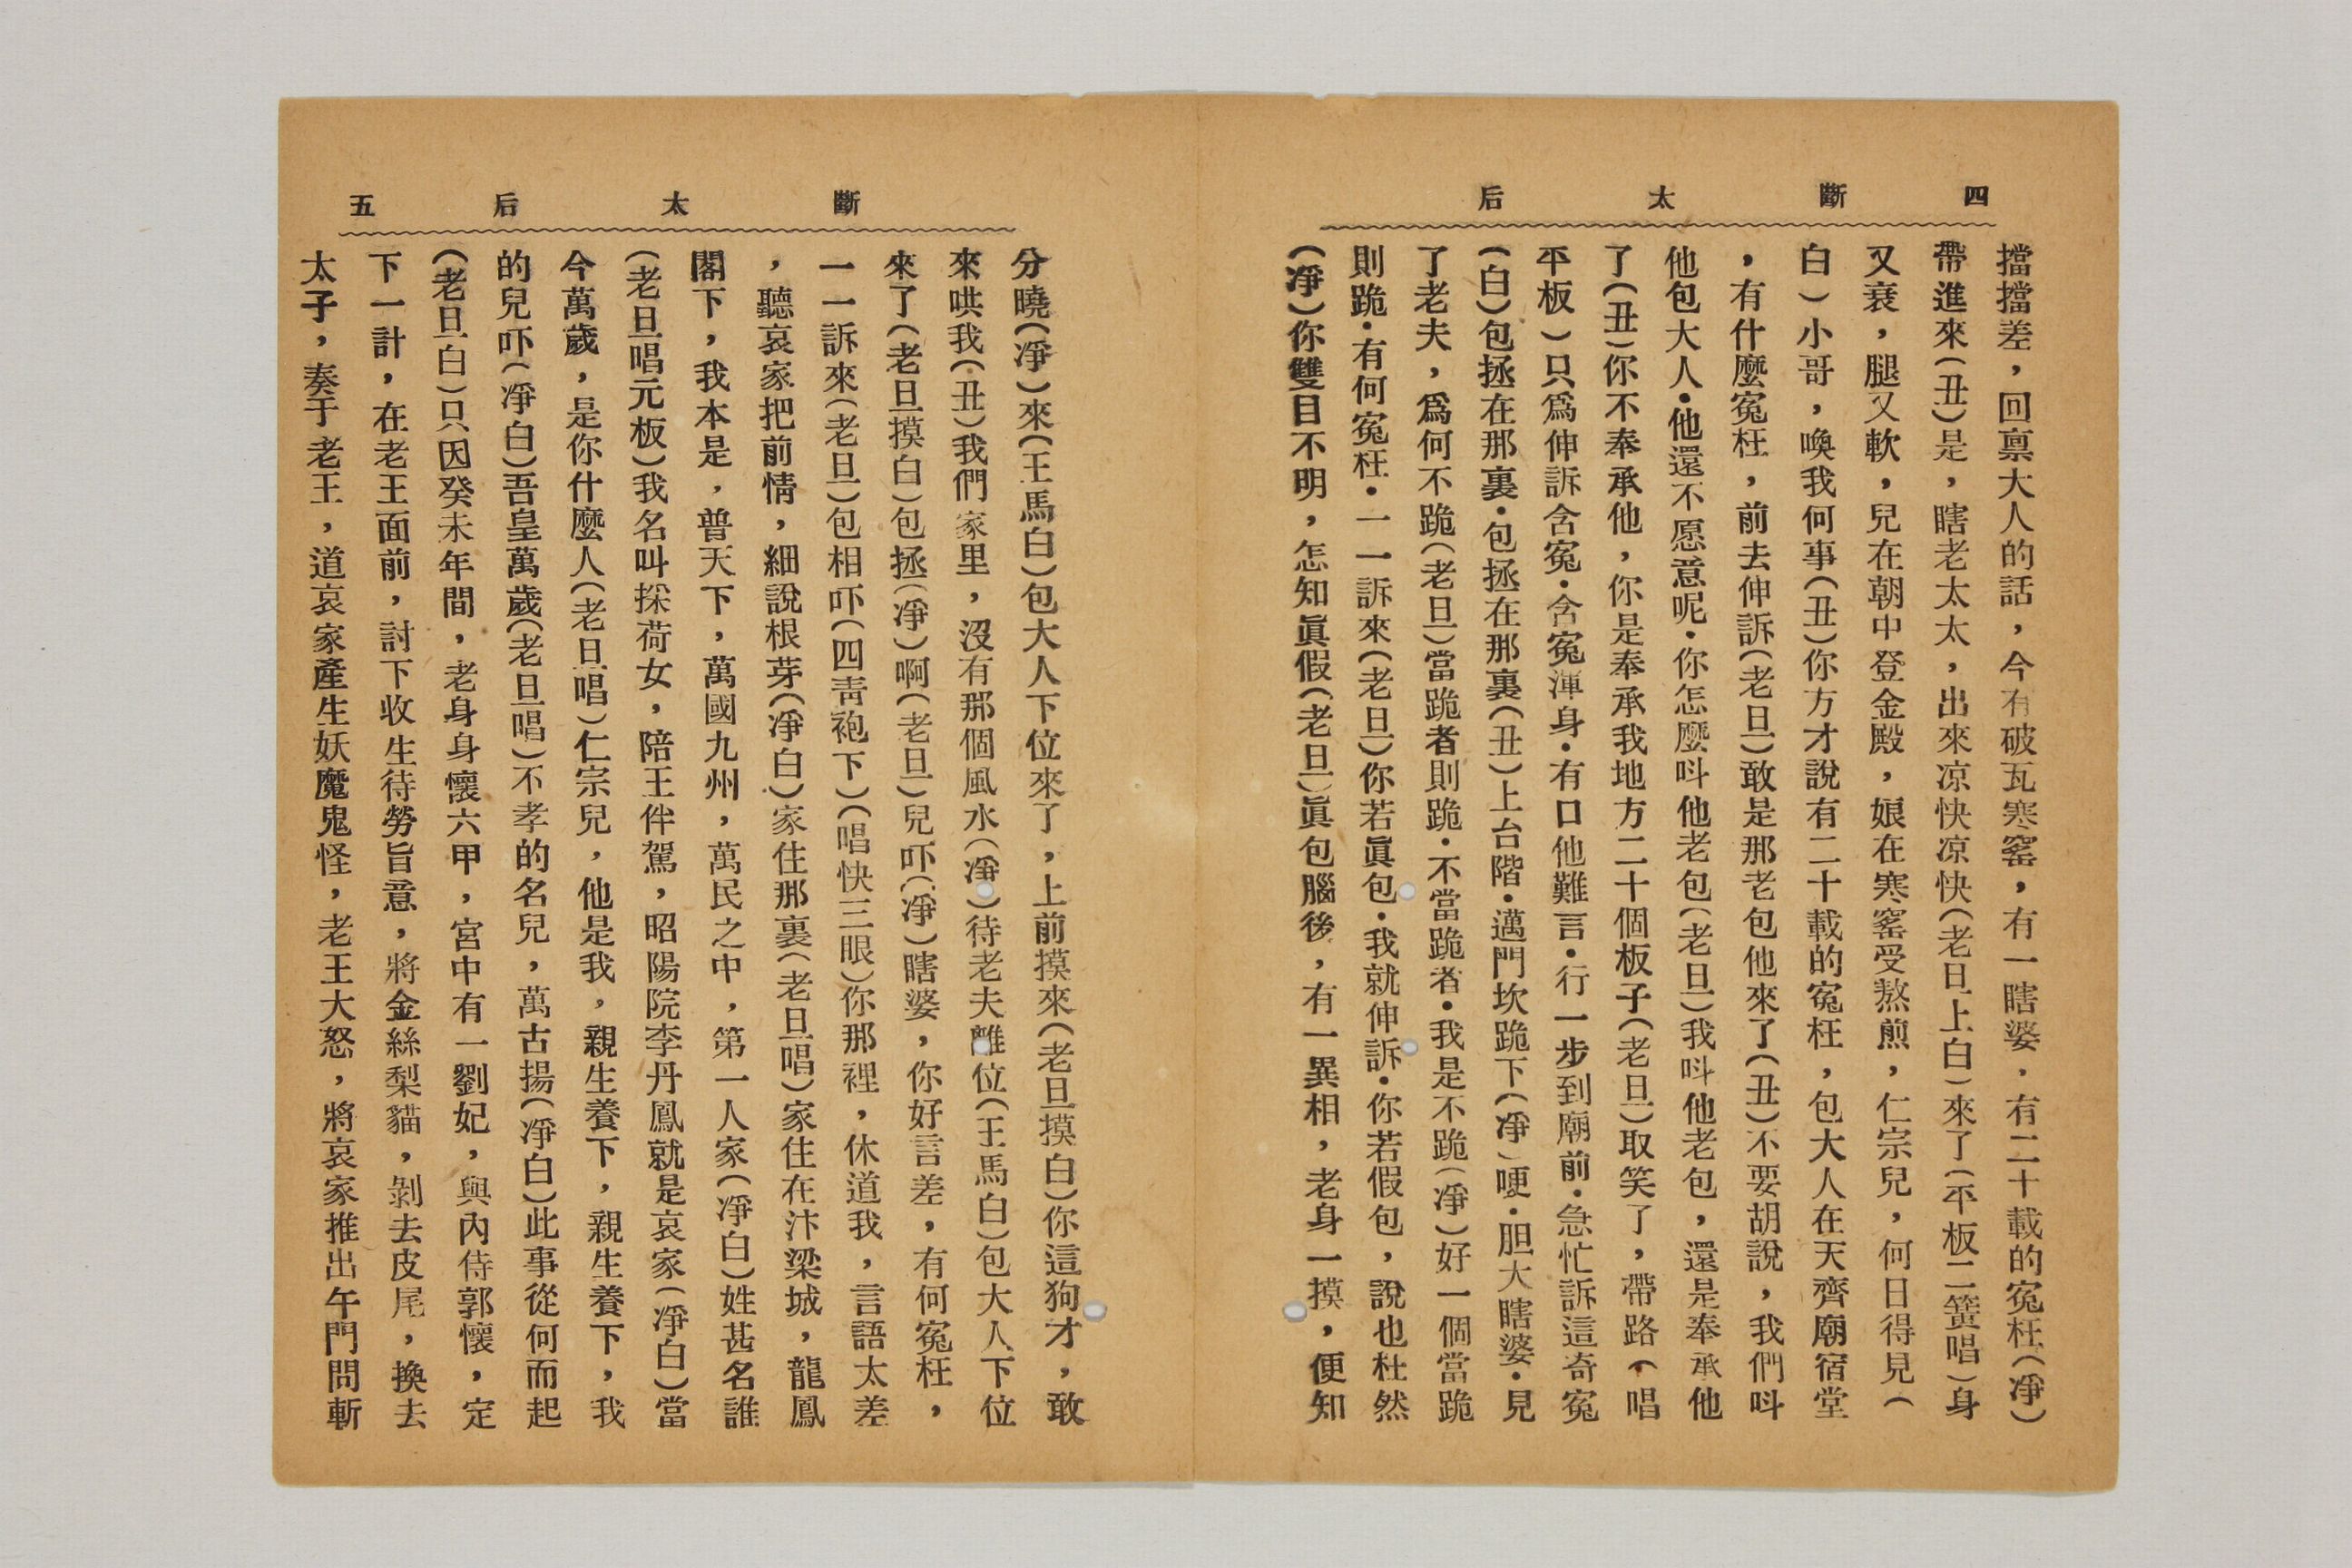 四　斷　太　后
擋擋差，回禀大人的話，今有破瓦寒窰，有一瞎婆，有二十載的寃枉（凈）
帶進來（丑）是，瞎老太太，出來凉快凉快（老旦上白）來了（平板二簧唱）身
又衰，腿又軟，兒在朝中登金殿，娘在寒窰受熬煎，仁宗兒，何日得見（
白）小哥，喚我何事（丑）你方才說有二十載的寃枉，包大人在天齊廟宿堂
，有什麼寃枉，前去伸訴（老旦）敢是那老包他來了（丑）不要胡說，我們呌
他包大人·他還不愿意呢·你怎麼呌他老包（老旦）我呌他老包，還是奉承他
了（丑）你不奉承他，你是奉承我地方二十個板子（老旦）取笑了，帶路（唱
平板）只爲伸訴含寃·含寃渾身·有口他難言·行一步到廟前·急忙訴這奇寃
（白）包拯在那裏·包拯在那裏（丑）上台階·邁門坎跪下（凈）哽·胆大瞎婆·見
了老夫，爲何不跪（老旦）當跪者則跪·不當跪者·我是不跪（凈）好一個當跪
則跪·有何寃枉·一一訴來（老旦）你若眞包·我就伸訴·你若假包，說也枉然
（凈）你雙目不明，怎知眞假（老旦）眞包腦後，有一異相，老身一摸，便知
斷　太　后　五
分曉（凈）來（王馬白）包大人下位來了，上前摸來（老旦摸白）你這狗才，敢
來哄我（丑）我們家里，沒有那個風水（凈）待老夫離位（王馬白）包大人下位
來了（老旦摸白）包拯（凈）啊（老旦）兒吓（凈）瞎婆，你好言差，有何寃枉，
一一訴來（老旦）包相吓（四靑袍下）（唱快三眼）你那裡，休道我，言語太差
，聽哀家把前情，細說根芽（凈白）家住那裏（老旦唱）家住在汴梁城，龍鳳
閣下，我本是，普天下，萬國九州，萬民之中，第一人家（凈白）姓甚名誰
（老旦唱元板）我名叫採荷女，陪王伴駕，昭陽院李丹鳳就是哀家（凈白）當
今萬歲，是你什麼人（老旦唱）仁宗兒，他是我，親生養下，親生養下，我
的兒吓（凈白）吾皇萬歲（老旦唱）不孝的名兒，萬古揚（凈白）此事從何而起
（老旦白）只因癸未年間，老身身懷六甲，宮中有一劉妃，與內侍郭懷，定
下一計，在老王面前，討下收生待勞旨意，將金絲梨貓，剝去皮尾，換去
太子，奏于老王，道哀家產生妖魔鬼怪，老王大怒，將哀家推出午門問斬